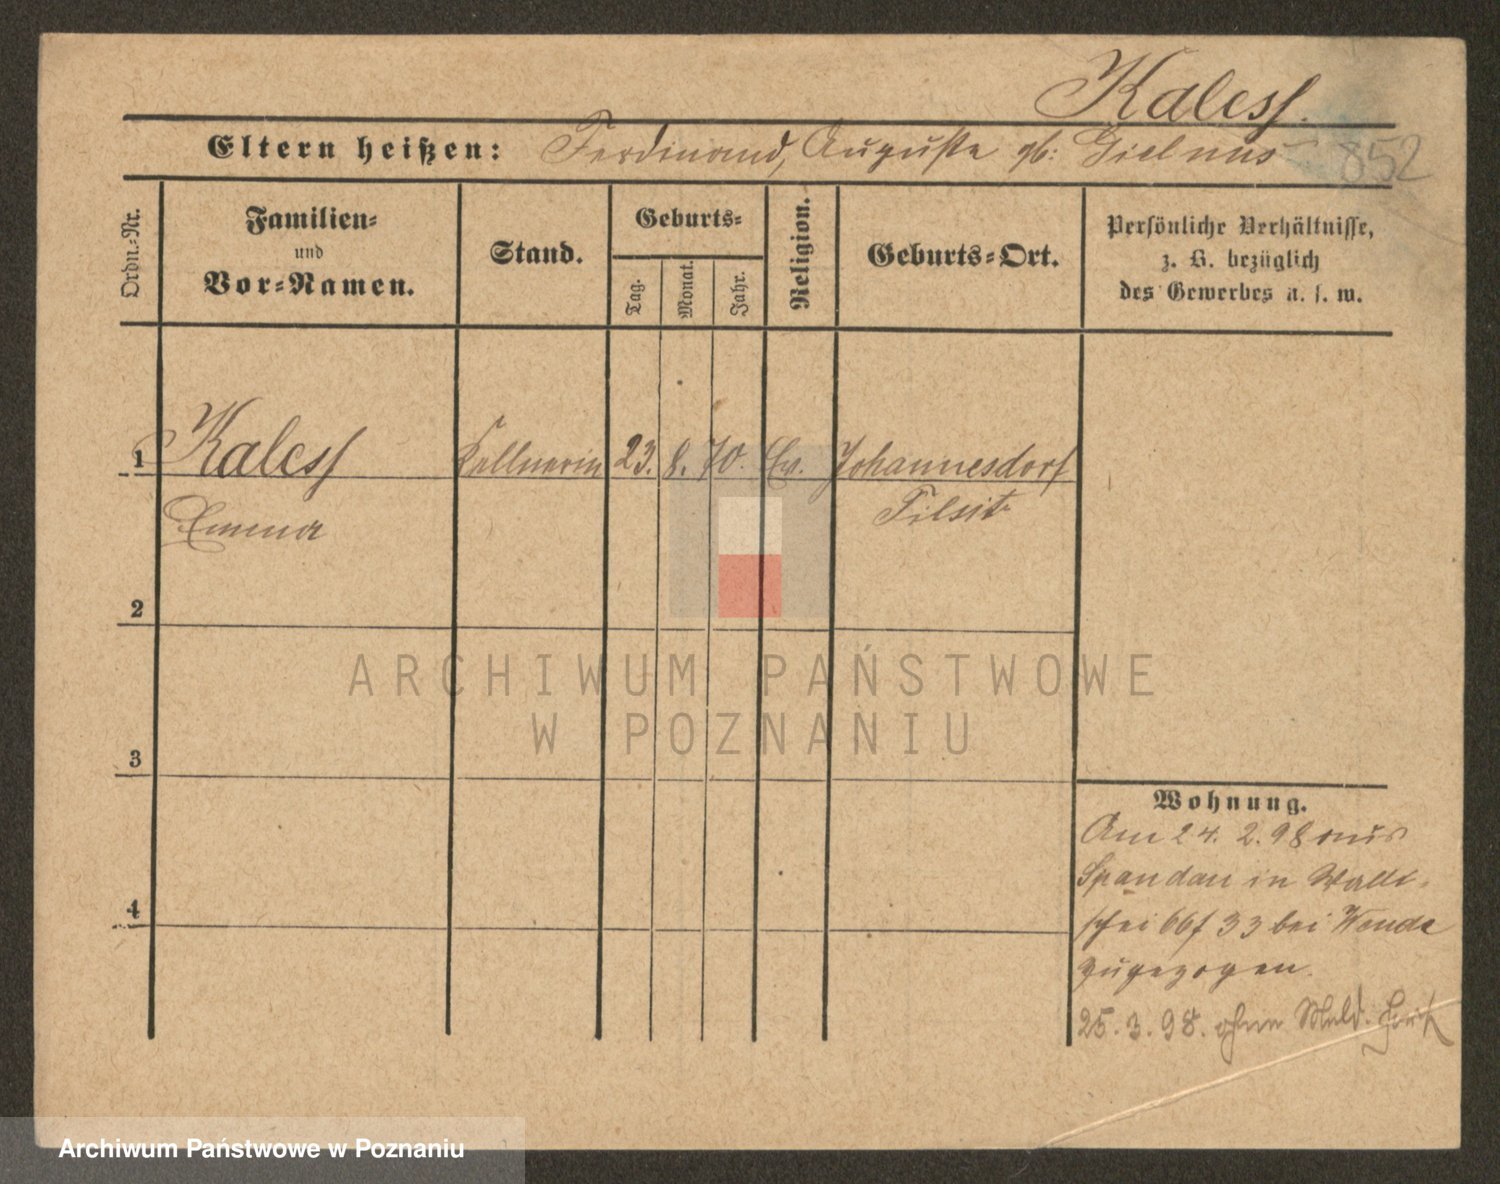 Kaless.
Eltern heißen: Ferdinand, Auguste gb: Gielnus
852
Ordn.-Nr.
Familien-
und
Vor-Namen.
Stand.
Geburts-
Tag.
Monat.
Jahr.
Religion.
Geburts-Ort.
Persönliche Verhältnisse,
z. B. bezüglich
des Gewerbes u. s. w.
1 Kaless Kellnerin 23. 8. 70. Ev. Johannesdorf
Emma Tilsit
2
3
4
Wohnung.
Am 24. 2. 98 aus
Spandau in Walli-
schei 66/33 bei Wenda
zugezogen.
25. 3. 98. ohne Meld. fort
ARCHIWUM PAŃSTWOWE
W POZNANIU
Archiwum Państwowe w Poznaniu